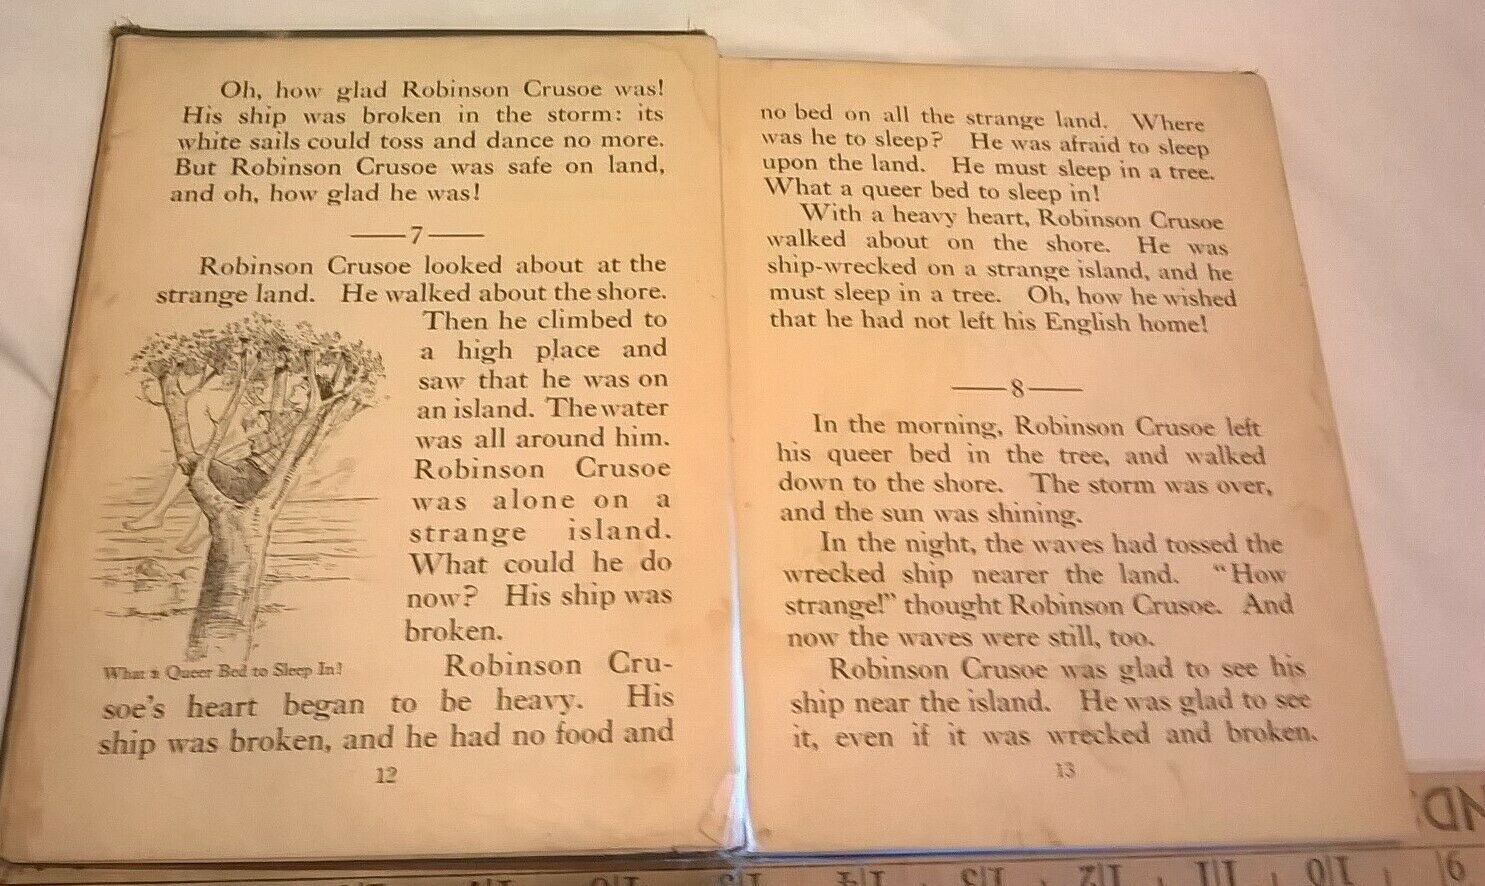 Oh, how glad Robinson Crusoe was!
His ship was broken in the storm: its
white sails could toss and dance no more.
But Robinson Crusoe was safe on land,
and oh, how glad he was!
—7—
Robinson Crusoe looked about at the
strange land. He walked about the shore.
Then he climbed to
a high place and
saw that he was on
an island. The water
was all around him.
Robinson Crusoe
was alone on a
strange island.
What could he do
now? His ship was
broken.
What a Queer Bed to Sleep In!
Robinson Cru-
soe's heart began to be heavy. His
ship was broken, and he had no food and
12
no bed on all the strange land. Where
was he to sleep? He was afraid to sleep
upon the land. He must sleep in a tree.
What a queer bed to sleep in!
With a heavy heart, Robinson Crusoe
walked about on the shore. He was
ship-wrecked on a strange island, and he
must sleep in a tree. Oh, how he wished
that he had not left his English home!
—8—
In the morning, Robinson Crusoe left
his queer bed in the tree, and walked
down to the shore. The storm was over,
and the sun was shining.
In the night, the waves had tossed the
wrecked ship nearer the land. "How
strange!" thought Robinson Crusoe. And
now the waves were still, too.
Robinson Crusoe was glad to see his
ship near the island. He was glad to see
it, even if it was wrecked and broken.
13